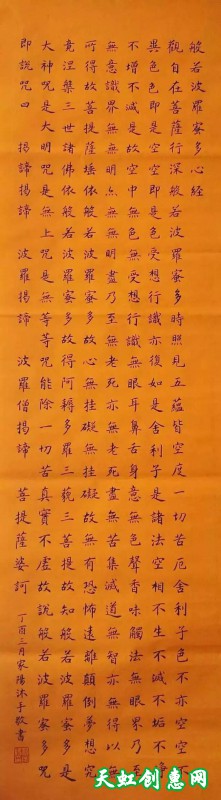 般若波羅蜜多心經
觀自在菩薩行深般若波羅蜜多時照見五蘊皆空度一切苦厄舍利子色不亦空空不
異色色即是空空即是色受想行識亦復如是舍利子是諸法空相不生不滅不垢不淨
不增不減是故空中無色無受想行識無眼耳鼻舌身意無色聲香味觸法無眼界乃至
無意識界無無明亦無無明盡乃至無老死亦無老死盡無苦集滅道無智亦無得以無
所得故菩提薩埵依般若波羅蜜多故心無挂礙無挂礙故無有恐怖遠離顛倒夢想究
竟涅槃三世諸佛依般若波羅蜜多故得阿耨多羅三藐三菩提故知般若波羅蜜多是
大神咒是大明咒是無上咒是無等等咒能除一切苦真實不虛故說般若波羅蜜多咒
即說咒曰 揭諦揭諦 波羅揭諦 波羅僧揭諦 菩提薩婆訶
丁酉三月家陽沐手敬書
天虹创意网